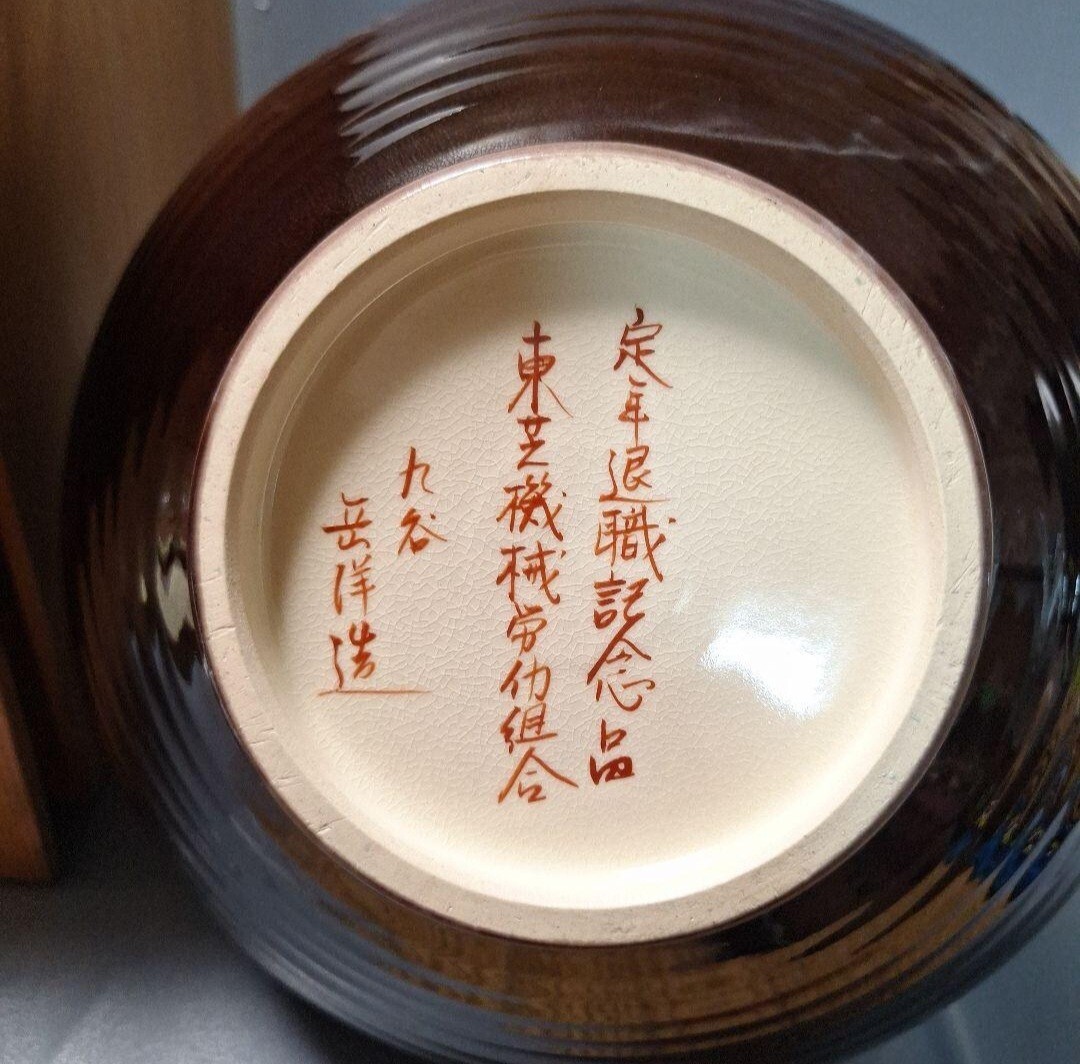 定年退職記念品
東芝機械労仂組合
九谷
岳洋造